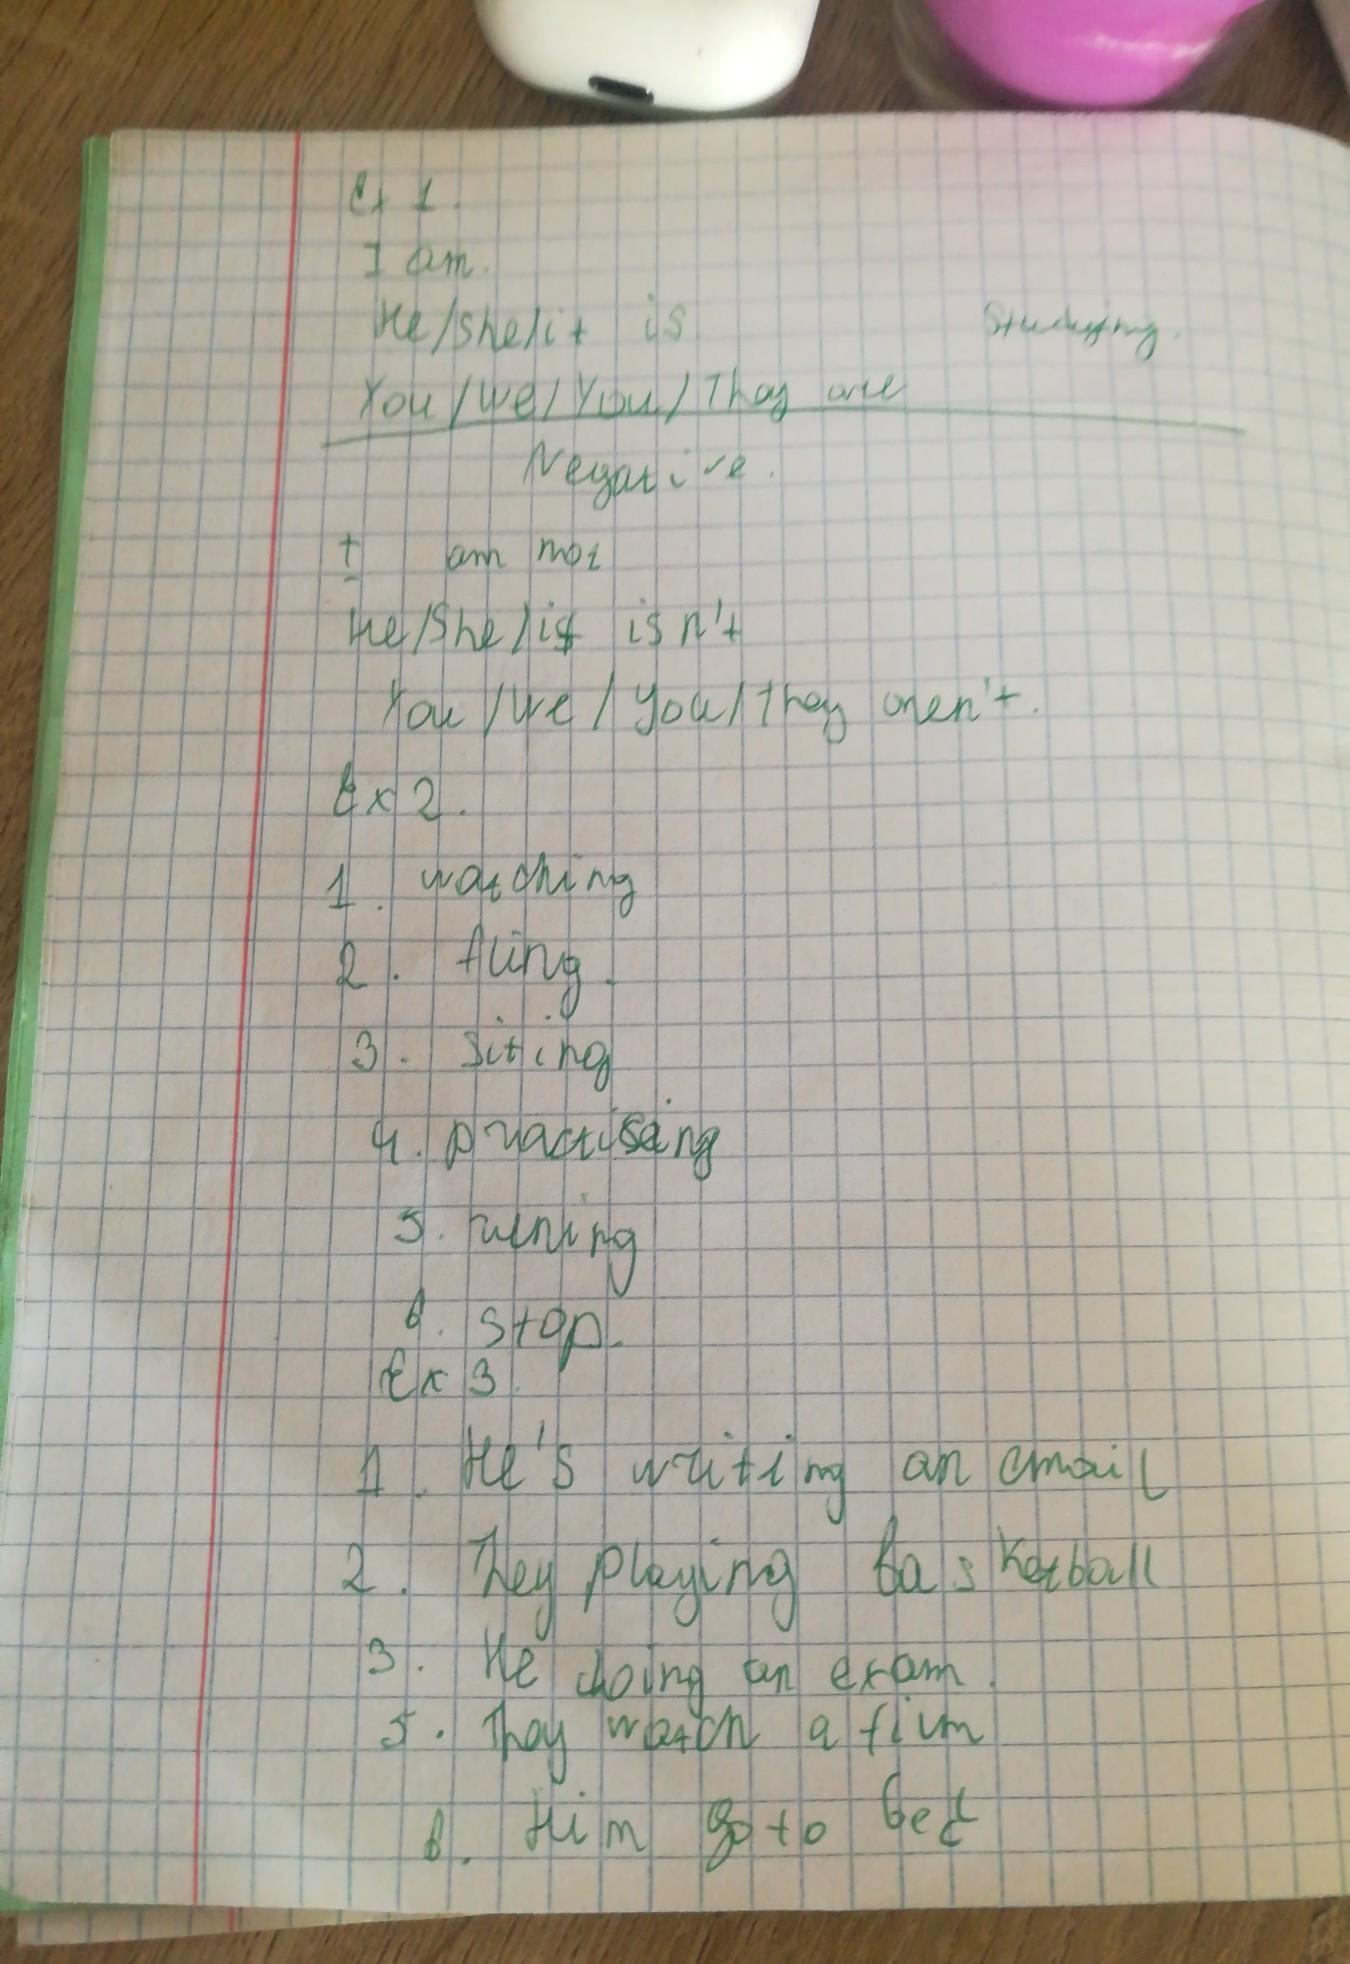 Ex 1.
I am.
He/she/it is studying.
You/we/You/They are
Negative.
I am not
He/She/it isn't
You/we/you/they aren't.
Ex 2.
1. watching
2. fling.
3. siting
4. practising
5. runing
6. stop.
Ex 3.
1. He's writing an email
2. They playing basketball
3. He doing an exam.
5. They watch a film
6. Him go to bed